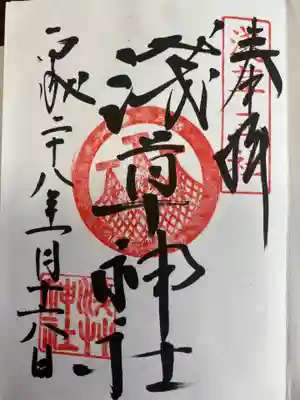 奉拝
淺草神社
平成二十八年一月十六日